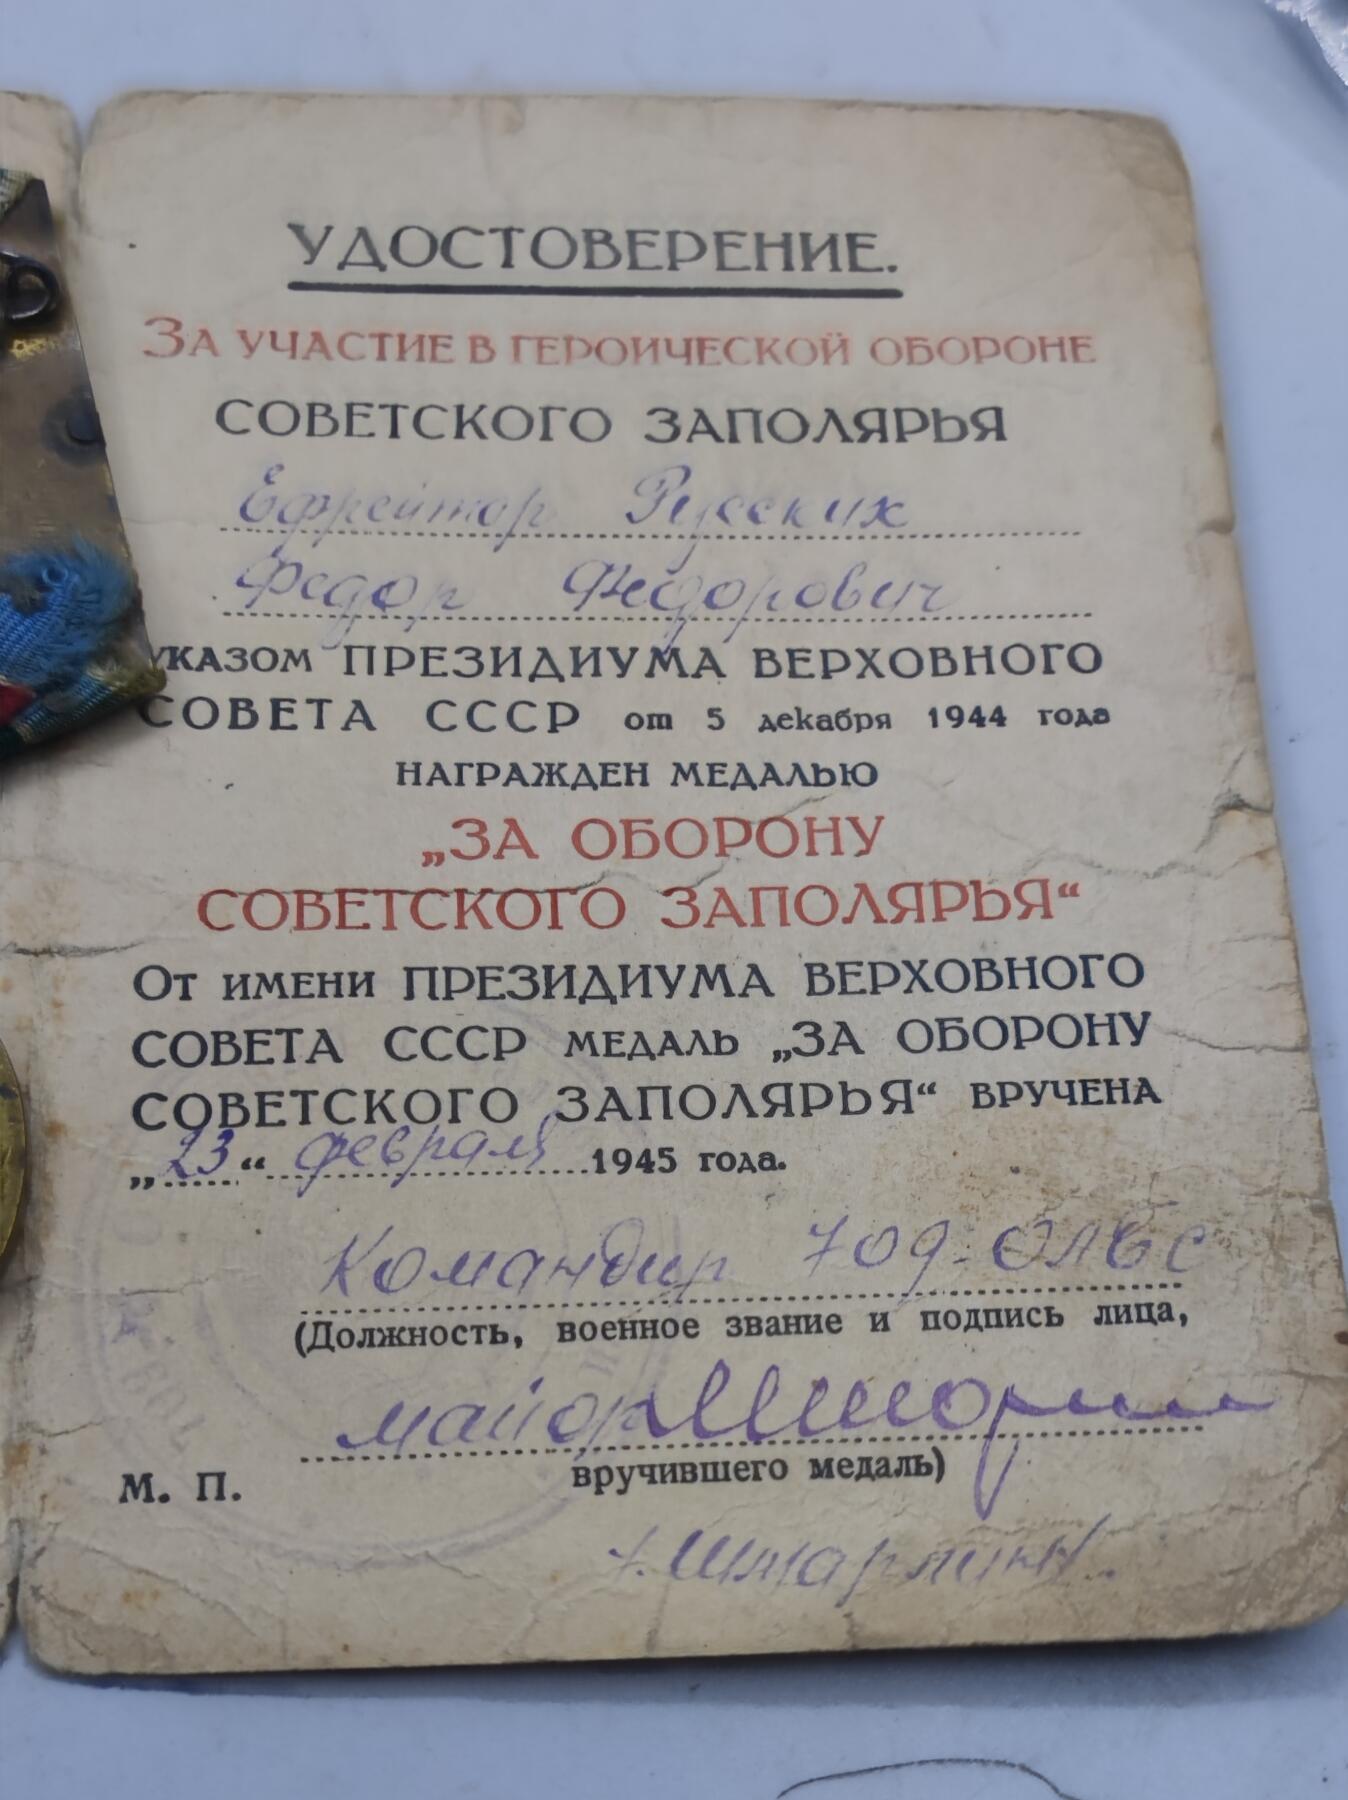 УДОСТОВЕРЕНИЕ.
ЗА УЧАСТИЕ В ГЕРОИЧЕСКОЙ ОБОРОНЕ
СОВЕТСКОГО ЗАПОЛЯРЬЯ
Ефрейтор Русских
Федор Федорович
УКАЗОМ ПРЕЗИДИУМА ВЕРХОВНОГО
СОВЕТА СССР от 5 декабря 1944 года
НАГРАЖДЕН МЕДАЛЬЮ
„ЗА ОБОРОНУ
СОВЕТСКОГО ЗАПОЛЯРЬЯ“
ОТ ИМЕНИ ПРЕЗИДИУМА ВЕРХОВНОГО
СОВЕТА СССР МЕДАЛЬ „ЗА ОБОРОНУ
СОВЕТСКОГО ЗАПОЛЯРЬЯ“ ВРУЧЕНА
„23“ февраля 1945 года.
Командир 709
(Должность, военное звание и подпись лица,
майор
вручившего медаль)
М. П.